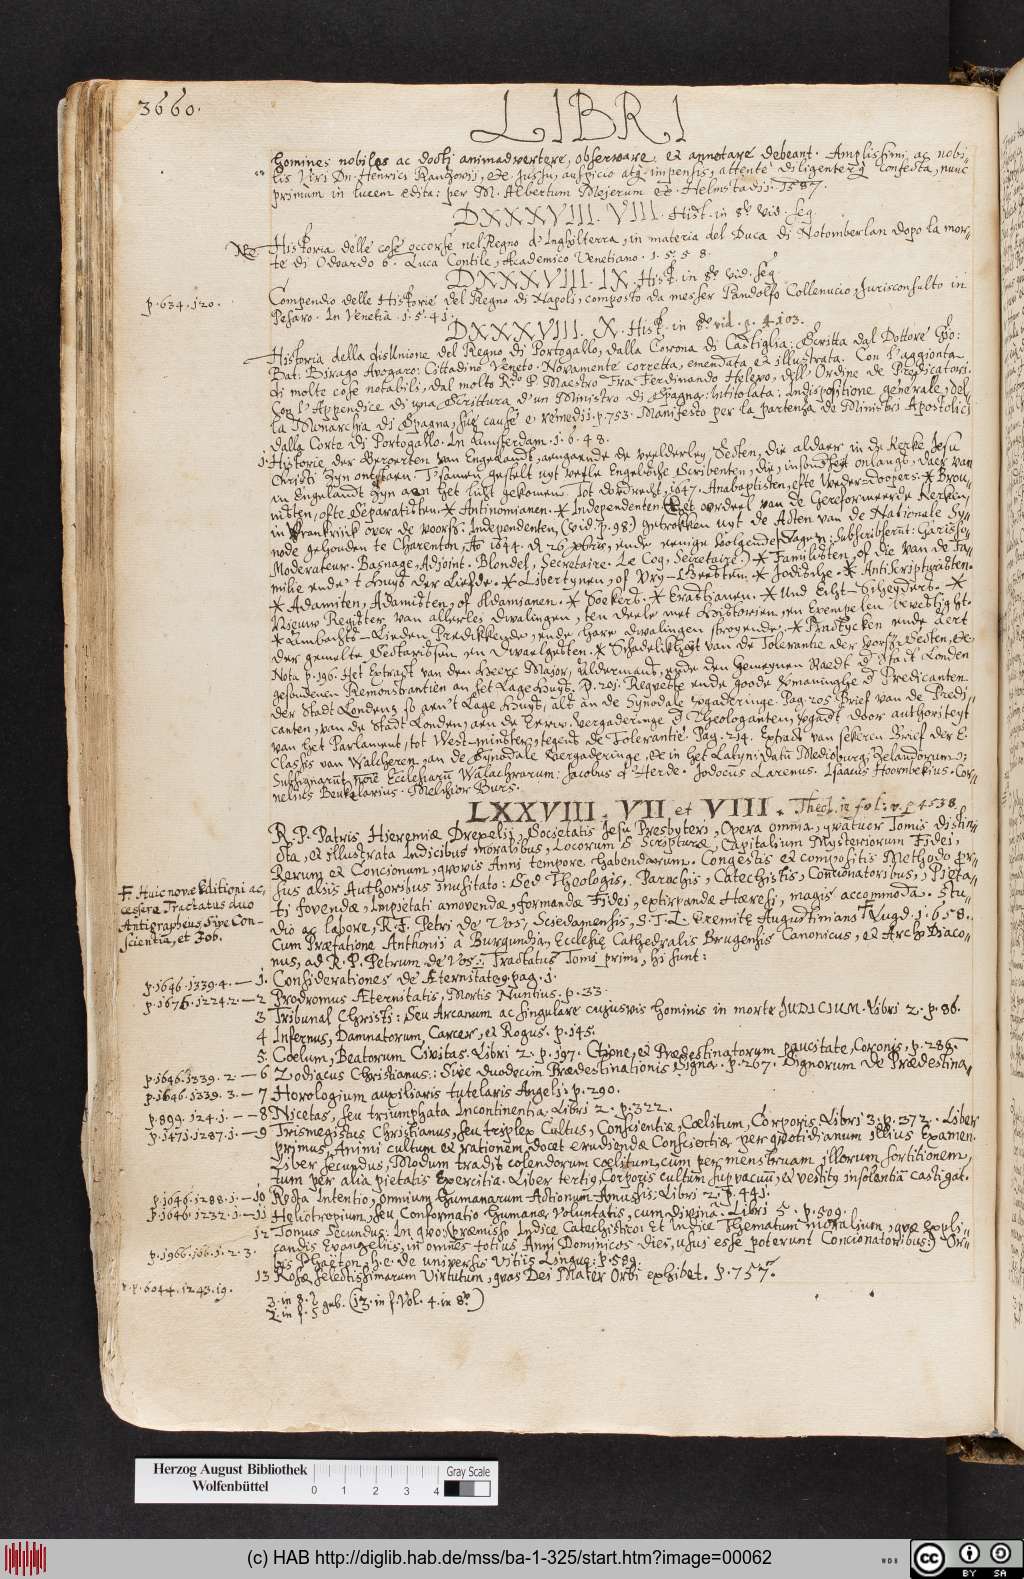 3660.
LIBRI
homines nobiles ac docti animadvertere, observare, et annotare debeant. Amplissimi, ac nobi-
lis Viri Dn. Henrici Ranzovii, etc. jussu, auspicio atq. impensis, attente diligenterq confecta, nunc
primum in lucem edita: per M. Albertum Mejerum etc. Helmstadii. 1587.
DXXXVIII. VIII. Hist. in 8° vid. seq
NB Historia delle cose occorse nel Regno d'Inghilterra, in materia del Duca di Notomberlan dopo la mor-
te di Odoardo 6. Luca Contile, Academico Venetiano. 1.5.5 8.
DXXXVIII. IX. Hist. in 8° vid. seq
p. 634. 120. Compendio delle Historie del Regno di Napoli, composto da messer Pandolfo Collenucio, Jurisconsulto in
Pesaro. In Venetia. 1.5.41.
DXXXVIII. X. Hist. in 8° vid. p. 4103.
Historia della disUnione del Regno di Portogallo, dalla Corona di Castiglia: Scritta dal Dottore Gio:
Bat: Birago Avogaro: Cittadino Veneto. Novamente corretta, emendata et illustrata. Con l'aggionta
di molte cose notabili, dal molto R.do P. Maestro Fra Ferdinando Helevo, dell'Ordine de Predicatori.
Con l'Appendice di una Scrittura d'un Ministro di Spagna: Intitolata: Indispositione generale, del-
la Monarchia di Spagna, sue cause e remedii. p. 753. Manifesto per la partenza de Ministri Apostolici
dalla Corte di Portogallo. In Amsterdam. 1.6.48.
1. Historie der Gevoerten van Engelandt, aengaende de veelderley Secten, die aldaer in de Kercke Jesu
Christi Zyn ontstaen. T'samen gestelt uyt veele Engelsche Scribenten, die, insonderheyt onlangs, daer van
in Engelandt Zyn aen het licht gekomen. Tot Dordrecht, 1647. Anabaptisten, ofte Weder-doopers. * Brow-
nisten, ofte Separatisten. * Antinomianen. * Independenten. Het oordeel van de Gereformeerde Kercken
in Vranckrijck over de voorss: Independenten, (vid. p. 98.) getrokken uyt de Acten van de Nationale Sy-
node gehouden te Charenton, Ao 1644. d. 26 Xbris, ende eenige volgende Dagen: Subscribserunt: Garisso-
Moderateur. Basnage, Adjoint. Blondel, Secretaire. Le Coq, Secretaire.) * Familisten, of die van de Fa-
milie ende 't Huys der Liefde. * Libertynen, of Vry-Geesten. * Jodische. * AntiScripturisten.
* Adamiten, Adamisten, of Adamianen. * Soekers. * Erastianen. * Und Echt-Scheyders. *
Nieuw Register van allerley dwalingen, ten deele met Historien en Exempelen bevestight.
* Ambachts-Lieden Predikkende, ende hare dwalingen stroyende. * Practycken ende aert
der gemelte Sectarissen en Dwaelgeesten. * Schadelikheyt van de Tolerantie der vorss: Secten, etc
Nota p. 196. Het Extract van den Heere Major, Aldermans, ende den Gemeynen Raedt d Stadt Londen
gesondenen Remonstrantien an het Lage Huys. p. 201. Requeste ende goode Vermaninghe d Predicanten
der Stadt Londens so aen't Lage Huys, als an de Synodale vergaderinge. Pag. 205 Brief van de Predi-
canten, van de Stadt Londen, aen de Eerw. Vergaderinge d Theologanten, vergadt door authoriteyt
van het Parlament, tot West-munster, tegens de Tolerantie. Pag. 214. Extract van sekeren Brief der E.
Classis van Walcheren, an de Synodale Vergaderinge, etc in het Latyn: datu Medioburgi Zelandorum
Subsignarunt noie Ecclesiaru Walachrarum: Jacobus d' Herde. Jodocus Larenus. Isaacus Hoornbekius. Cor-
nelius Beukelarius. Melchior Burs.
LXXVIII. VII et VIII. Theol. in fol: v. p 4538.
R. P. Patris Hieremiæ Drexelii, Societatis Jesu Presbyteri, Opera omnia, quatuor Tomis distin-
cta, et illustrata Indicibus moralibus, Locorum S. Scripturæ, Capitalium Mysteriorum Fidei,
Rerum et Concionum, quovis Anni tempore habendarum. Congestis et compositis Methodo pr-
F. Huic novæ Editioni ac-
cessere Tractatus duo
Antigrapheus, sive Con-
scientia, et Job.
sus aliis Authoribus inusitato: Sed Theologis, Parochis, Catechistis, Concionatoribus, Pieta-
ti fovendæ, Impietati amovendæ, formandæ Fidei, extirpandæ Hæresi, magis accommoda. Stu-
dio ac labore, R. F. Petri de Vos, Sciedamensis, S. T. L. Eremitæ Augustiniani F Lugd. 1.6.58.
Cum Præfatione Anthonii à Burgundia, Ecclesiæ Cathedralis Brugensis Canonicus, et ArchiDiaco-
nus, ad R. P. Petrum de Vos: Tractatus Tomi primi, hi sunt:
p. 1646. 1339. 4. — 1. Considerationes de Æternitate. pag. 1.
p. 1676. 1224. 2. — 2 Prodromus Æternitatis, Mortis Nuntius. p. 33.
3 Tribunal Christi: Seu Arcanum ac singulare cujusvis hominis in morte JUDICIUM. Libri 2. p. 86.
4 Infernus, Damnatorum Carcer, et Rogus. p. 145.
5. Coelum, Beatorum Civitas. Libri 2. p. 197. Ctione, et Prædestinatorum paucitate, Coronis, p. 286.
p. 1646. 1339. 2. — 6 Zodiacus Christianus: Sive duodecim Prædestinationis Signa. p. 267. Signorum de Prædestina-
p. 1646. 1339. 3. — 7 Horologium auxiliaris tutelaris Angeli. p. 290.
p. 899. 124. 1. — 8 Nicetas, seu triumphata Incontinentia. Libri 2. p. 322.
p. 1471. 1287. 1. — 9 Trismegistus Christianus, seu triplex Cultus, Conscientiæ, Coelitum, Corporis. Libri 3. p. 372. Liber
primus, Animi cultum et rationem docet erudiendæ Conscientiæ per quotidianum illius Examen.
Liber secundus, Modum tradit colendorum coelitum, cum per menstruam illorum sortitionem,
tum per alia pietatis Exercitia. Liber tertiq Corporis cultum supvacuu, et vestitq insolentia castigat.
p. 1646. 1288. 1. — 10 Recta Intentio, omnium humanarum Actionum Amussis: Libri 2. p. 441.
p. 1646. 1232. 1. — 11 Heliotropium, seu Conformatio humanæ Voluntatis, cum Divina. Libri 5. p. 509.
12 Tomus Secundus: In quo, præmisso Indice Catechistico: Et Indice Thematum moralium, quæ expli-
candis Evangeliis, in omnes totius Anni Dominicos dies, usui esse poterunt Concionatoribus: Or-
p. 1966. 166. 1. 2. 3. bis Phaëton, h. e. de universis Vitiis Linguæ: p. 589.
v. p. 6044. 1243. 19. 13 Rosæ selectissimarum Virtutum, quas Dei Mater Orbi exhibet. p. 757.
Herzog August Bibliothek
Wolfenbüttel
0 1 2 3 4
Gray Scale
(c) HAB http://diglib.hab.de/mss/ba-1-325/start.htm?image=00062
WDB
cc BY SA